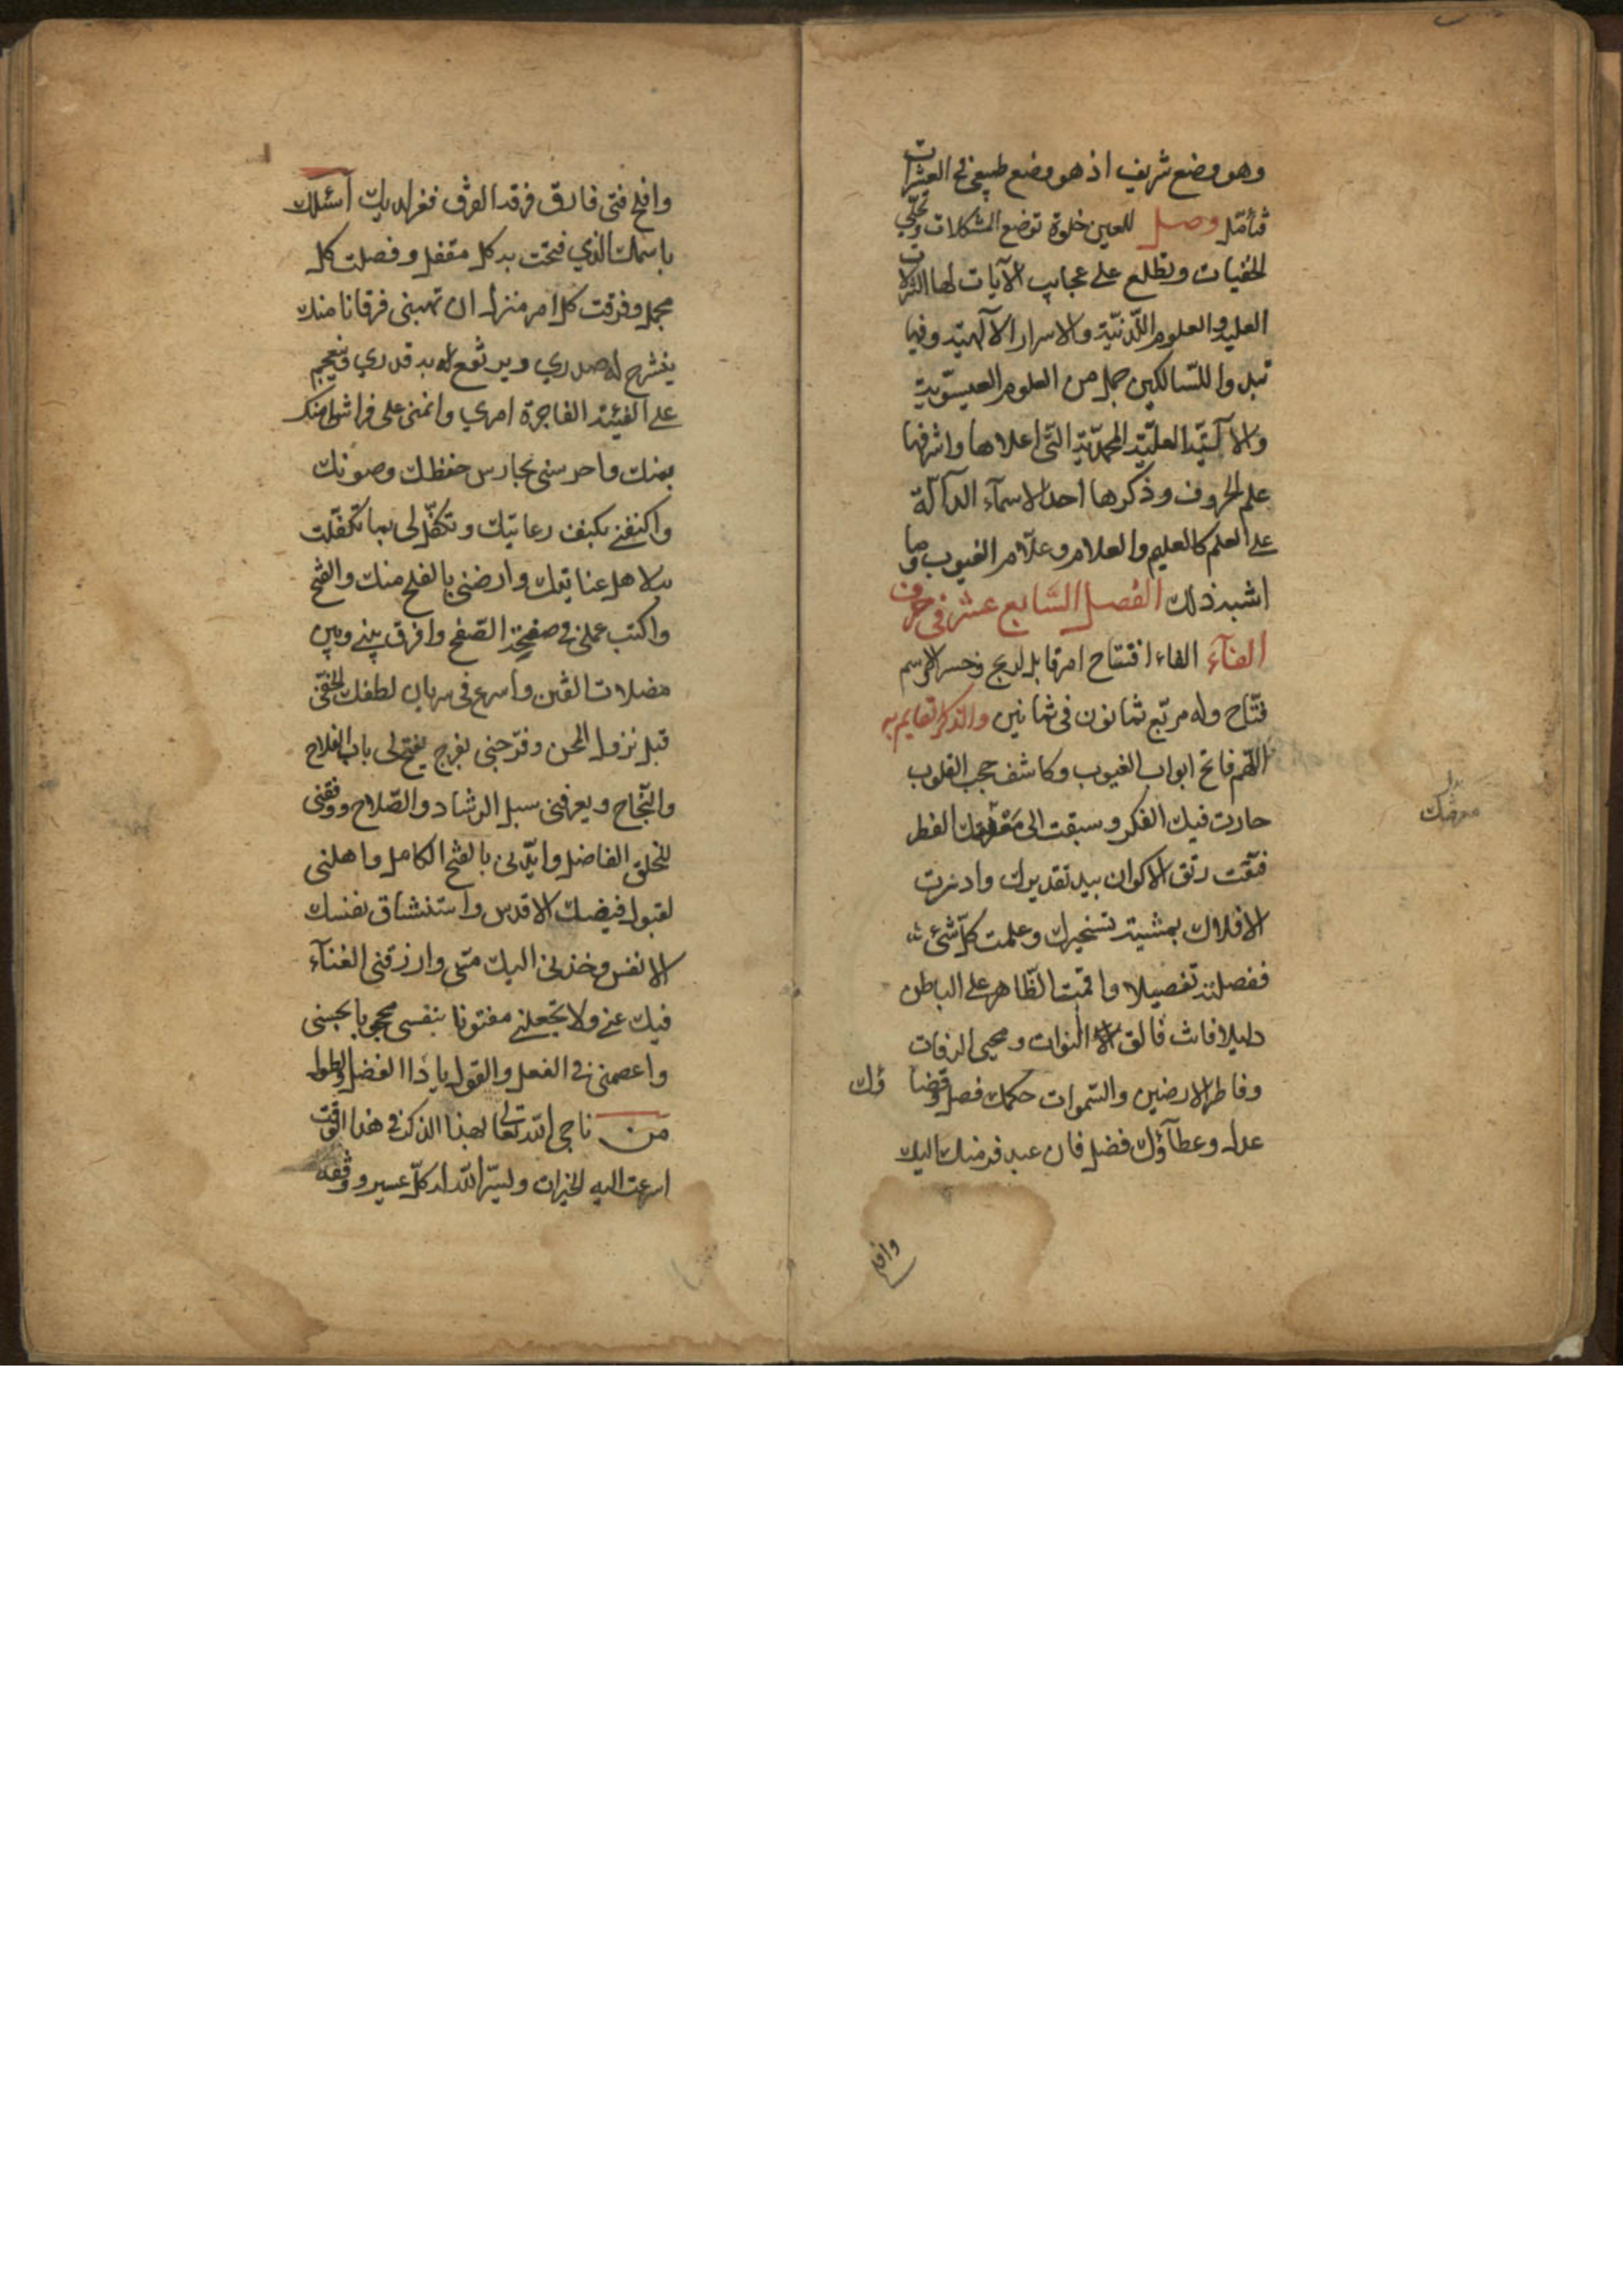 وهو وضع شريف اذ هو وضع طبيعي في العشرات
فتأمّل وصل للعين خلوة توضح المشكلات وتجلّي
الخفيات وتطلع على عجايب الآيات لها
العليه والعلوم اللّدنيّة والاسرار الآلهيّة وفيها
تبدوا للسّالكين جمل من العلوم العيسّويّة
العليّة المحمدّيّة الّتي اعلاها واشرفها
علم الحروف وذكرها احد الاسمآء الدآلّة
على العلم كالعليم والعلام وعلّام الغيوب وما
اشبه ذلك الفصل السّابع عشر في حرف
الفآء الفاء افتتاح امر قابل الاسم
فتّاح وله مربّع ثمانون في ثمانين والذكر القايم به
اللّهم فاتح ابواب الغيوب وكاشف حجب القلوب
حارت فيك الفكر وسبقت الى معرفتك الفطر
فتقت رتق الاكوان بيد تقديرك وادرت
الافلاك بمشيّة تسخيرك وعلمت كلّ شئ
ففصلته تفصيلا واقمت الظّاهر على الباطن
دليلا فانت فالق النوات ومحيى الرفات
وفاطر الارضين والسّموات حكمك فصل وقضاؤك
عدل وعطآؤك فضل فان عبد فر منك اليك
وافى
معرفتك
وافى فتى فارق فرقد الفرق ففر اليك أسئلك
باسمك الذي فتحت به كل مقفل وفصلت كل
مجمل وفرقت كل امر منزل ان تهبني فرقانا منك
ينشرح له صدري ويرتفع به قدري
على الفيئة الفاجرة امري وانمنى على فراش منك
واحرسنى بحارس حفظك وصونك
واكنفنى بكنف رعايتك وتكفّل لى بما تكفّلت
به لاهل عنايتك وارضنى بالفلح منك والفتح
واكتب عملى في صفحة الصّفح وافرق بيني وبين
مضلات الفتن واسرع في سريان لطفك الخفيّ
قبل نزول المحن وفرّحنى بفرج يفتح لى باب الفلاح
والنّجاح ويعرفنى سبل الرشاد والصّلاح ووفقنى
للخلق الفاضل وايّدنى بالفتح الكامل واهلنى
لقبول فيضك الاقدس واستنشاق نفسك
الانفس وخذنى اليك منّى وارزقنى الفنآء
فيك عني ولا تجعلني مفتونا بنفسى محجوبا بحسّى
واعصمنى في الفعل والقول يا ذا الفضل والطول
من ناجى الله تعالى بهذا الذكر في هذا الوقت
اسرعت اليه الخيرات وليسّر الله له كلّ عسير ووفّقه